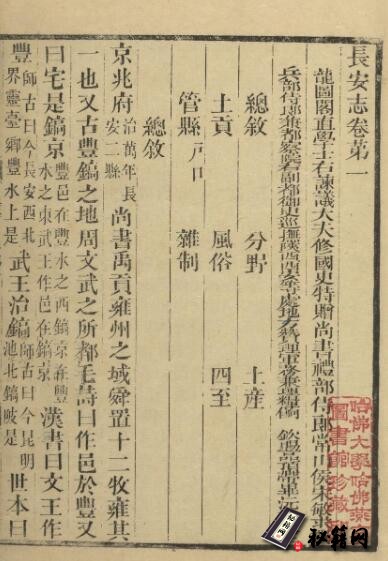 長安志卷第一
龍圖閣直學士右諫議大夫修國史特贈尚書禮部侍郎常山侯宋敏求
兵部侍郎兼都察院右副都御史巡撫陝西西安等處地方贊理軍務兼理糧餉 欽賜品頂帶畢沅
總敘 分野 土産
土貢 風俗 四至
管縣戶口 雜制
總敘
京兆府治萬年長安二縣尚書禹貢雍州之域舜置十二牧雍其
一也又古豐鎬之地周文武之所都毛詩曰作邑於豐又
曰宅是鎬京豐邑在豐水之西鎬京在豐水之東武王作邑在鎬京漢書曰文王作
豐師古曰今長安西北界靈臺鄉豐水上是武王治鎬師古曰今昆明池北鎬陂是世本曰
哈佛大學哈佛燕
圖書館珍藏
秘籍网